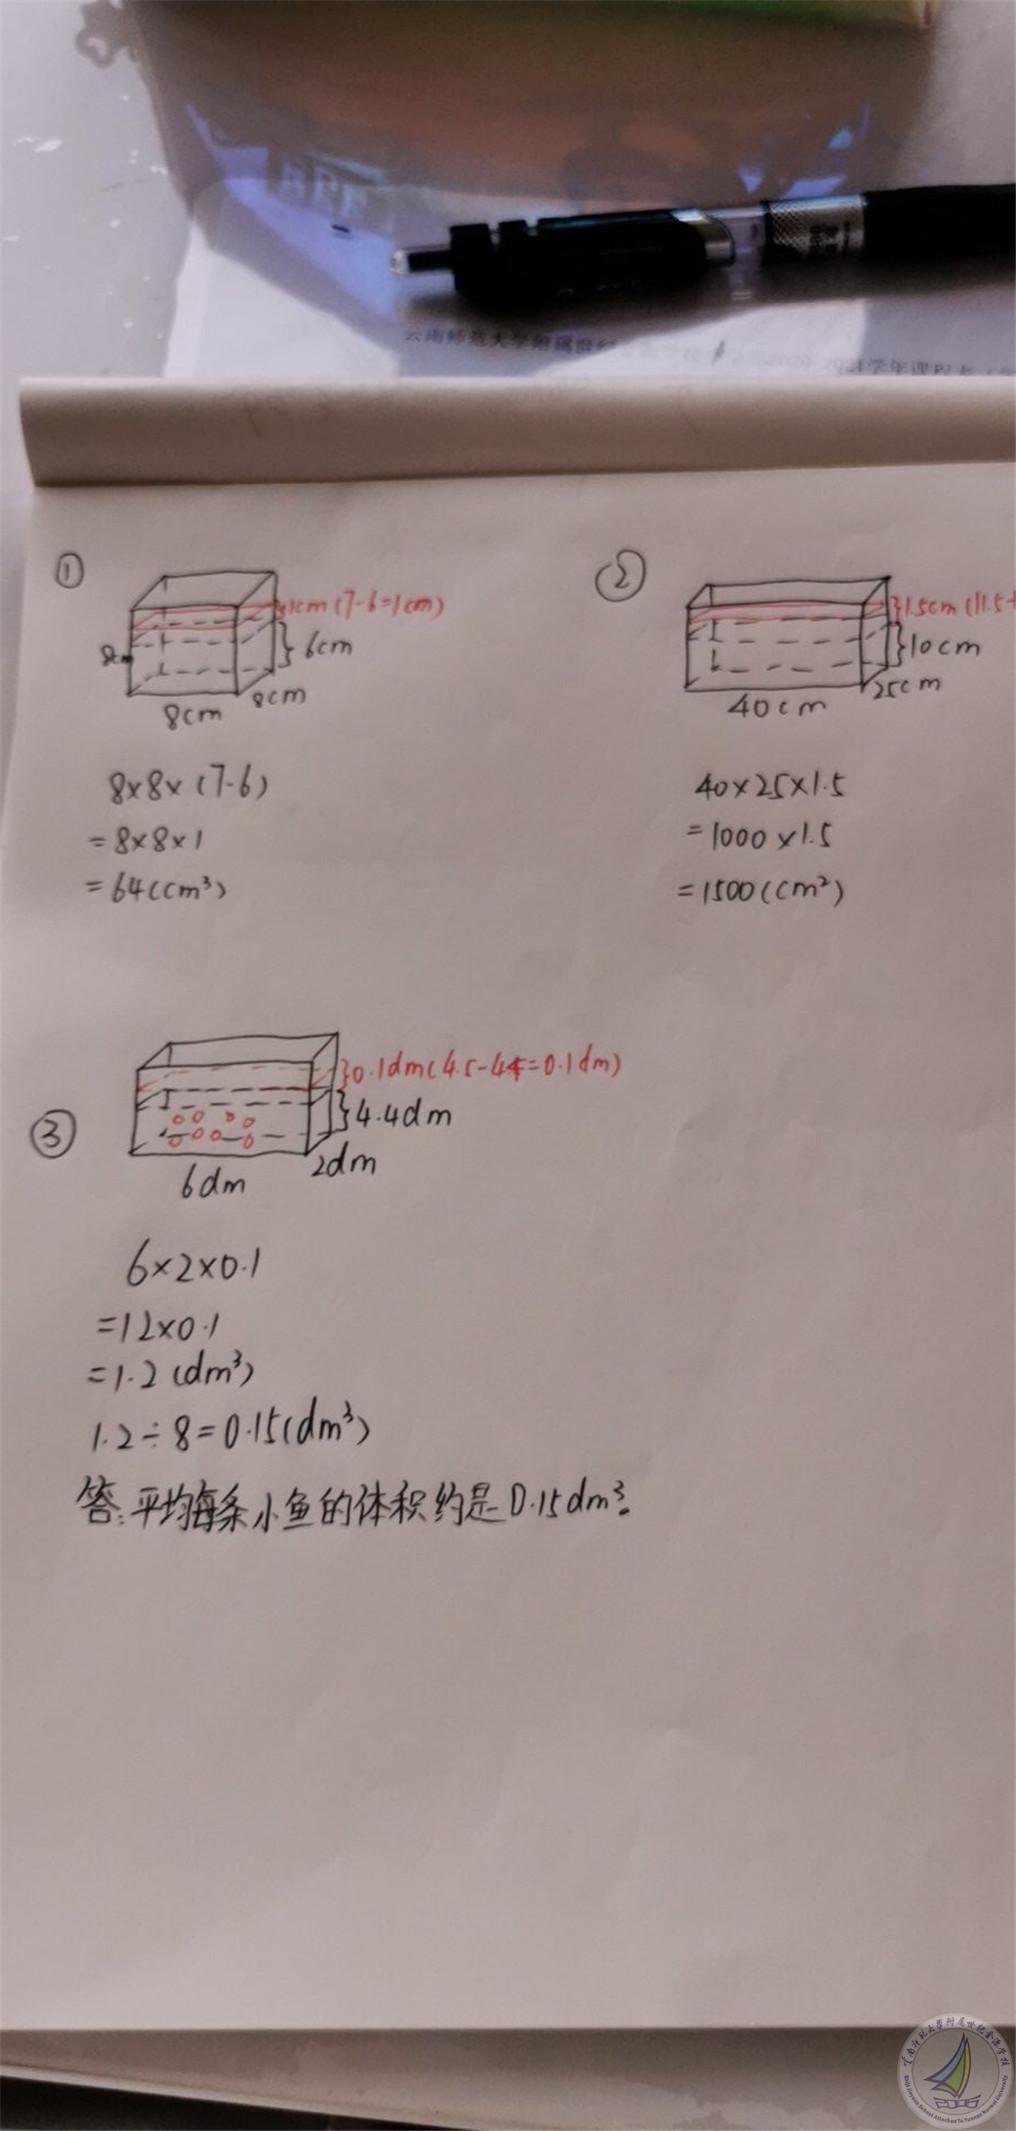 ①
1cm(7-6=1cm)
6cm
8cm
8cm
8×8×(7-6)
=8×8×1
=64(cm³)
②
1.5cm(11.5
10cm
25cm
40cm
40×25×1.5
=1000×1.5
=1500(cm²)
③
0.1dm(4.5-4.4=0.1dm)
4.4dm
2dm
6dm
6×2×0.1
=12×0.1
=1.2(dm³)
1.2÷8=0.15(dm³)
答:平均每条小鱼的体积约是0.15dm³。